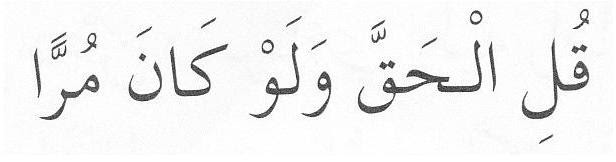 قُلِ الْـحَقَّ وَلَوْ كَانَ مُرًّا